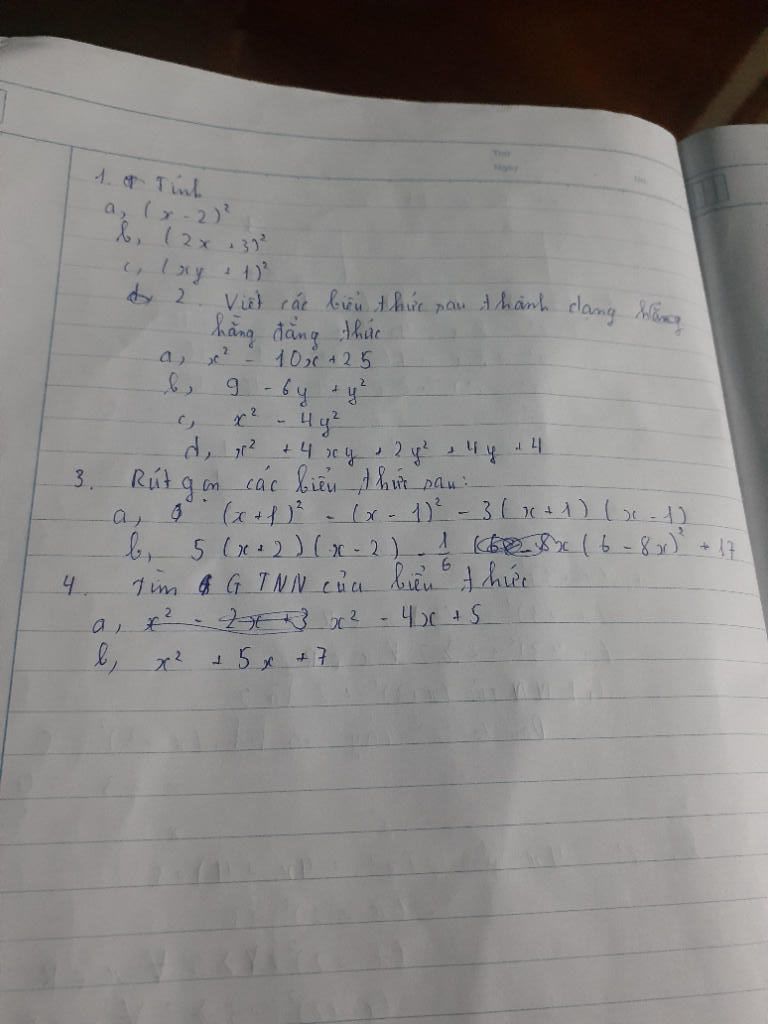 Thứ
Ngày
1. Tính
a, (x - 2)²
b, (2x + 3)²
c, (xy + 1)²
2. Viết các biểu thức sau thành dạng hằng
hằng đẳng thức
a, x² - 10x + 25
b, 9 - 6y + y²
c, x² - 4y²
d, x² + 4xy + 2y² + 4y + 4
3. Rút gọn các biểu thức sau:
a, (x+1)² - (x - 1)² - 3(x+1)(x-1)
b, 5(x+2)(x-2) - 1/6 x(6-8x)² + 17
4. Tìm GTNN của biểu thức
a, x² - 2x + 3 x² - 4x + 5
b, x² + 5x + 7